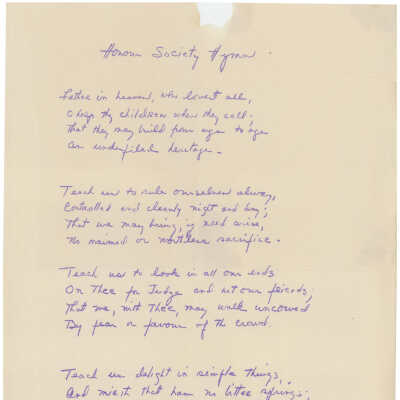 Honour Society Hymn.
Father in heaven, who lovest all,
O help thy children when they call;
That they may build from age to age
An undefiled heritage.
Teach us to rule ourselves alway,
Controlled and cleanly night and day;
That we may bring, if need arise,
No maimed or worthless sacrifice.
Teach us to look in all our ends
On Thee for Judge and not our friends;
That we, with Thee, may walk uncowed
By fear or favour of the crowd.
Teach us delight in simple things,
And mirth that has no bitter springs;